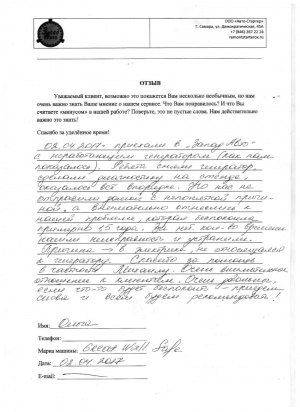 ООО «Авто-Стартер»
Г. Самара, ул. Демократическая, 45А
+7 (846) 267 22 24
remont@startvcs.ru
ОТЗЫВ
Уважаемый клиент, возможно это покажется Вам несколько необычным, но нам
очень важно знать Ваше мнение о нашем сервисе. Что Вам понравилось? И что Вы
считаете «минусом» в нашей работе? Поверьте, это не пустые слова. Нам действительно
важно это знать!
Спасибо за уделённое время!
02.04.2017г приехали в „Запад Авто"
с неработающим генератором (как нам
показалось). Ребята сняли генератор,
сделали диагностику на стенде,
оказалось всё впорядке. Но нас не
отправили домой с непонятной причи-
ной, а внимательно отнеслись к
нашей проблеме, которая беспокоила
примерно 1,5 года,
нашли неисправность и устранили.
Причина – в
к генератору. Спасибо за помощь
в частности Михаилу. Очень внимательное
отношение к клиентам. Очень довольны,
если что-то будет беспокоить – приедем
снова и всем будем рекомендовать!
Имя: Ольга
Телефон:
Марка машины: Great Wall Safe
Дата: 02.04.2017
E-mail: